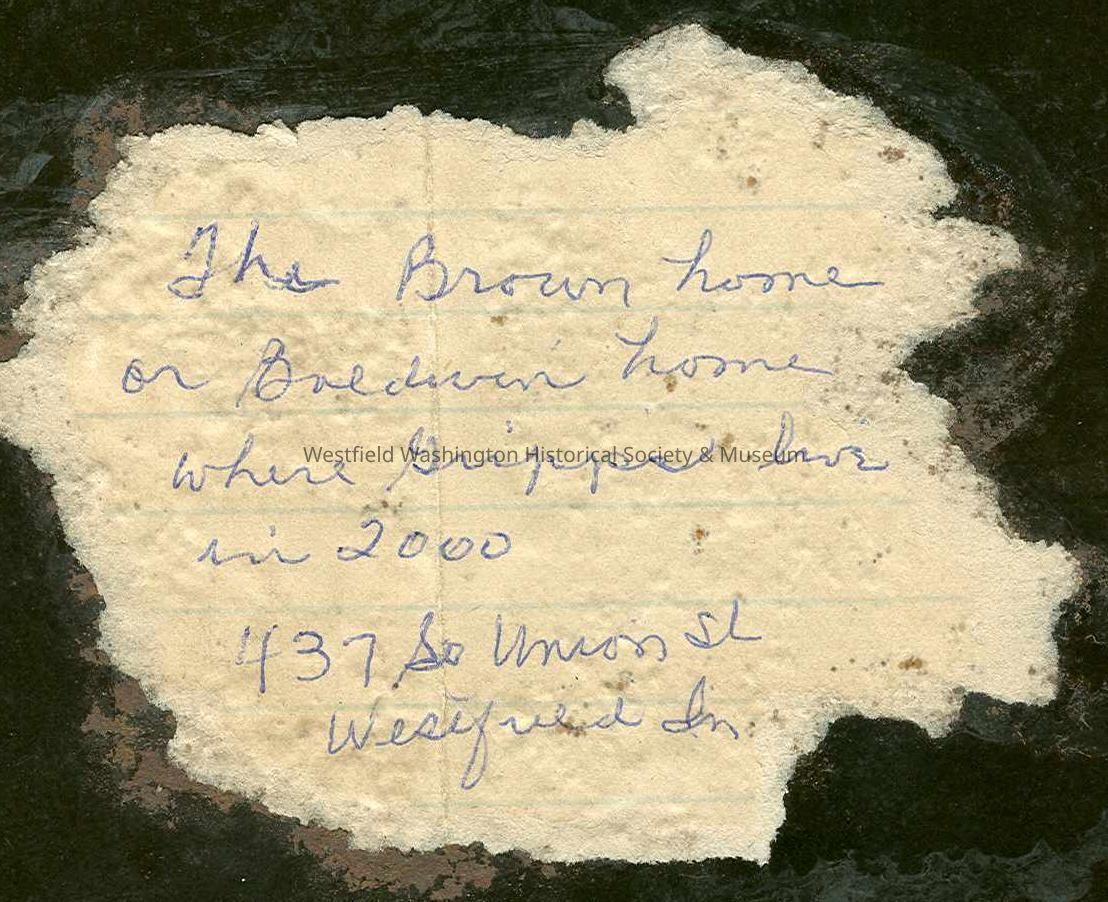 The Brown home
or Baldwin home
where live
Westfield Washington Historical Society & Museum
in 2000
437 So Union St
Westfield In.